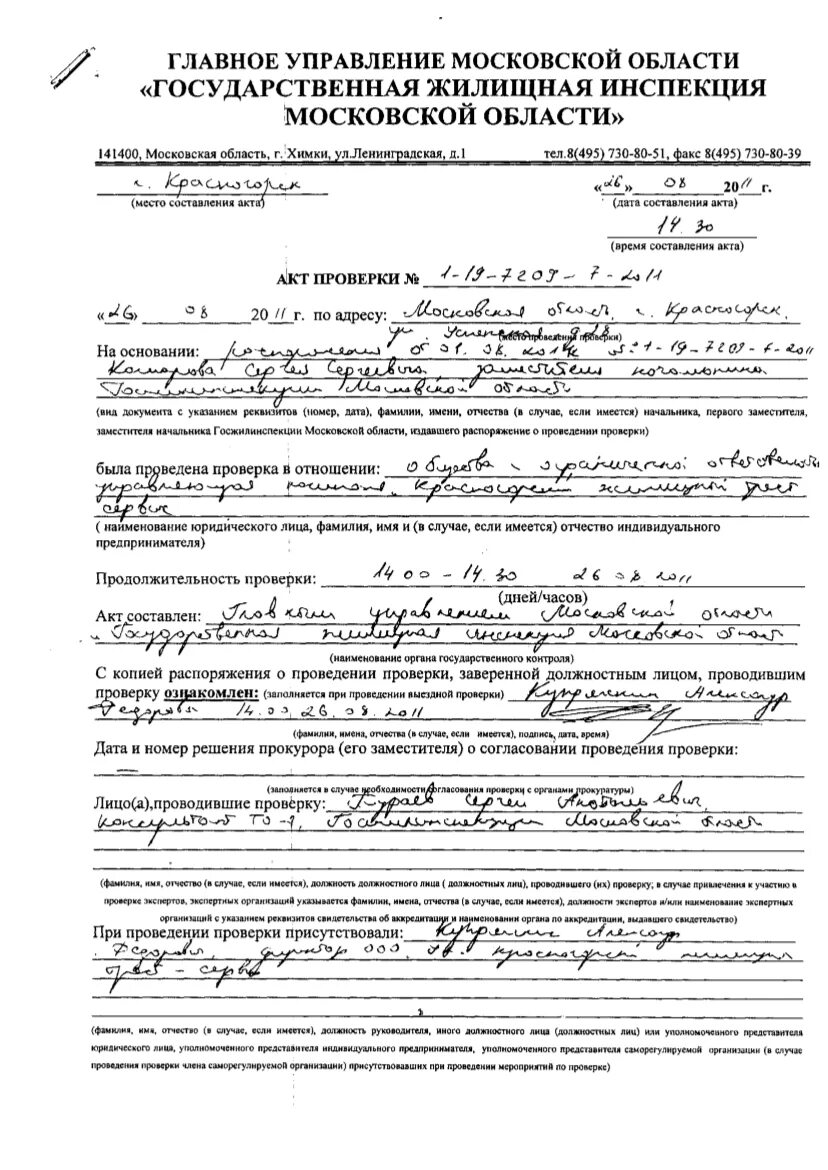 ГЛАВНОЕ УПРАВЛЕНИЕ МОСКОВСКОЙ ОБЛАСТИ
«ГОСУДАРСТВЕННАЯ ЖИЛИЩНАЯ ИНСПЕКЦИЯ
МОСКОВСКОЙ ОБЛАСТИ»
141400, Московская область, г. Химки, ул.Ленинградская, д.1 тел.8(495) 730-80-51, факс 8(495) 730-80-39
г. Красногорск «26» 08 2011 г.
(место составления акта) (дата составления акта)
14.30
(время составления акта)
АКТ ПРОВЕРКИ № 1-19-7209-7-2011
«26» 08 2011 г. по адресу: Московская область, г. Красногорск,
ул
(место проведения проверки)
На основании: распоряжения от 08. № 1-19-7209-7-2011
Комарова Сергея Сергеевича, заместителя начальника
Госжилинспекции Московской области
(вид документа с указанием реквизитов (номер, дата), фамилии, имени, отчества (в случае, если имеется) начальника, первого заместителя,
заместителя начальника Госжилинспекции Московской области, издавшего распоряжение о проведении проверки)
была проведена проверка в отношении: общества с ограниченной ответственностью
управляющая компания Красногорский жилищный трест
сервис
( наименование юридического лица, фамилия, имя и (в случае, если имеется) отчество индивидуального
предпринимателя)
Продолжительность проверки: 14 00 - 14.30 26 08 2011
(дней/часов)
Акт составлен: Главным управлением Московской области
Государственная жилищная инспекция Московской области
(наименование органа государственного контроля)
С копией распоряжения о проведении проверки, заверенной должностным лицом, проводившим
проверку ознакомлен: (заполняется при проведении выездной проверки) Александр
Федорович 14.00, 26.08.2011
(фамилии, имена, отчества (в случае, если имеется), подпись, дата, время)
Дата и номер решения прокурора (его заместителя) о согласовании проведения проверки:
—
(заполняется в случае необходимости согласования проверки с органами прокуратуры)
Лицо(а),проводившие проверку: Сергей Анатольевич,
консультант ТО-7, Госжилинспекции Московской области
(фамилия, имя, отчество (в случае, если имеется), должность должностного лица ( должностных лиц), проводившего (их) проверку; в случае привлечения к участию в
проверке экспертов, экспертных организаций указывается фамилии, имена, отчества (в случае, если имеется), должности экспертов и/или наименование экспертных
организаций с указанием реквизитов свидетельства об аккредитации и наименовании органа по аккредитации, выдавшего свидетельство)
При проведении проверки присутствовали: Александр
Федорович, директор ООО, Красногорский жилищный
трест - сервис
(фамилия, имя, отчество (в случае, если имеется), должность руководителя, иного должностного лица (должностных лиц) или уполномоченного представителя
юридического лица, уполномоченного представителя индивидуального предпринимателя, уполномоченного представителя саморегулируемой организации (в случае
проведения проверки члена саморегулируемой организации) присутствовавших при проведении мероприятий по проверке)